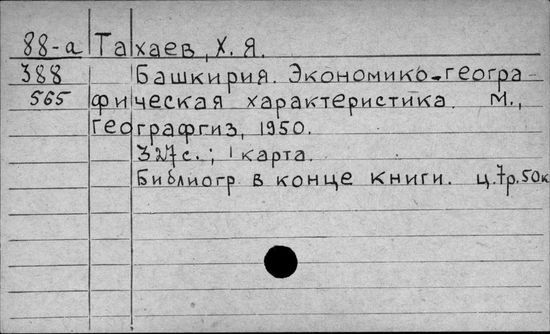 88-а Тахаев, Х. Я.
388 Башкирия. Экономико-геогра-
565 фическая характеристика. М.,
Географгиз, 1950.
327с.; 1 карта.
Библиогр в конце книги. ц.7р.50к